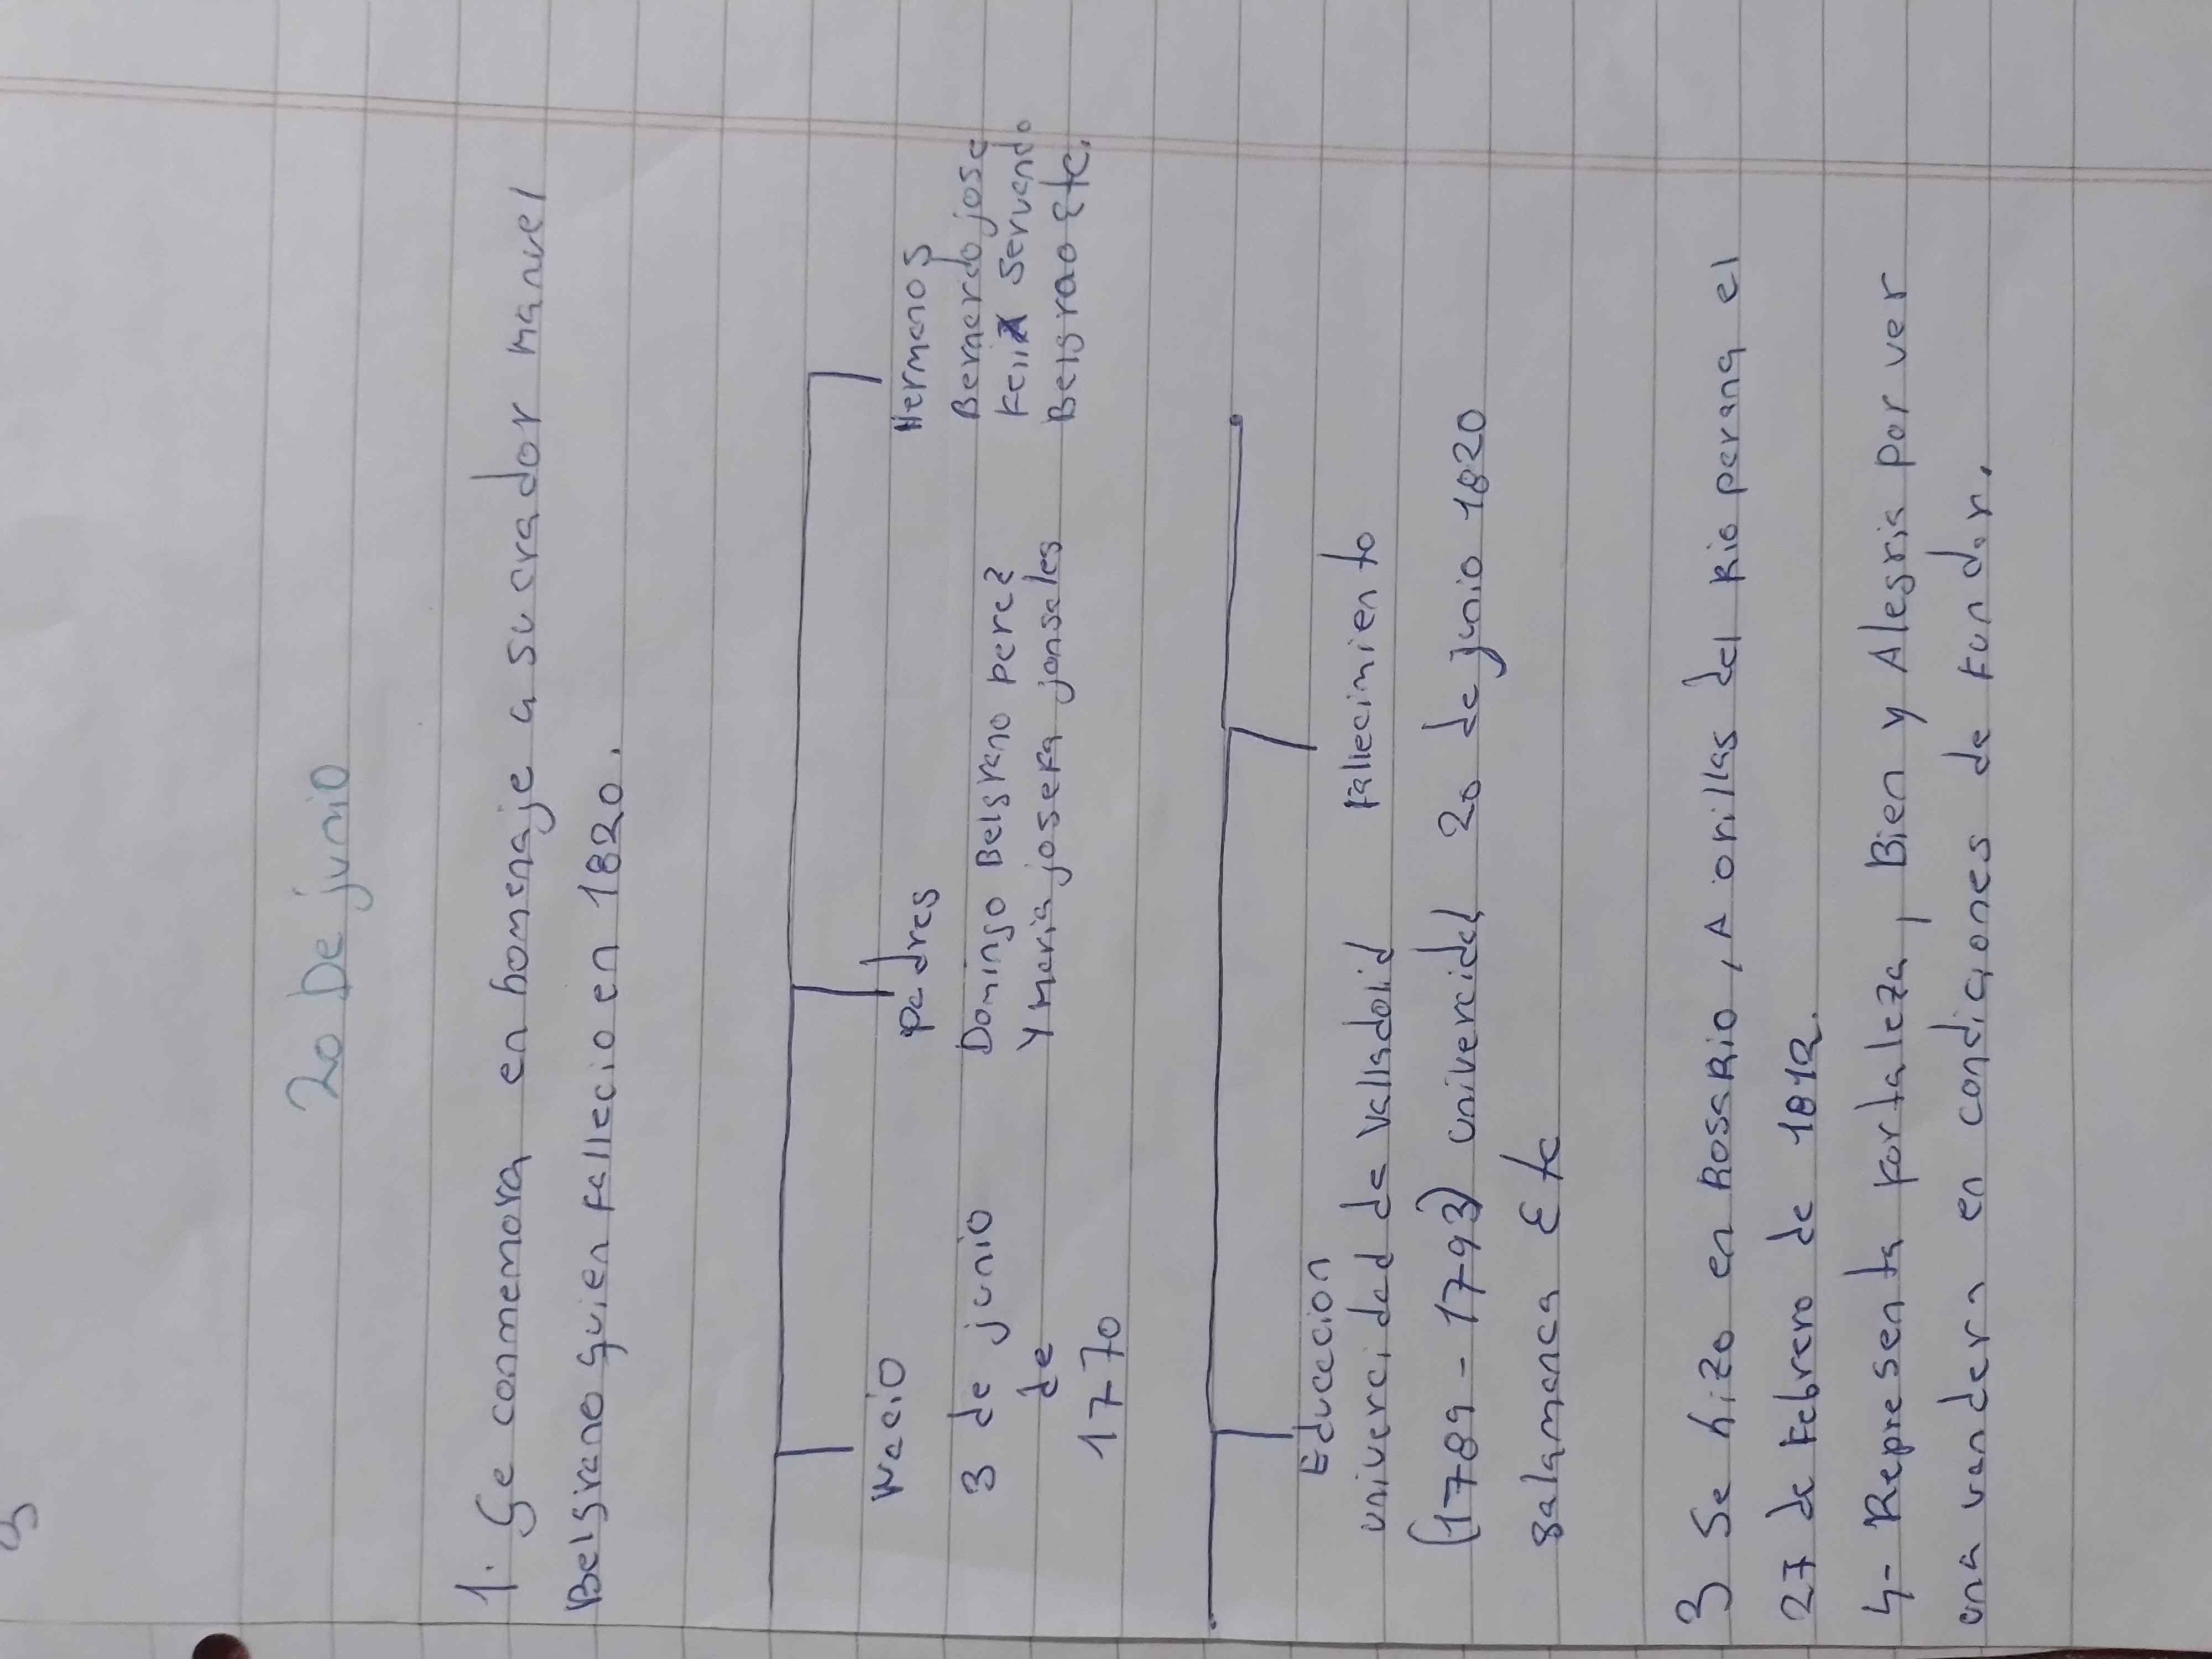 20 De junio
1. Se conmemora en homenaje a su crador manuel
Belgrano quien fallecio en 1820.
Nacio
3 de junio
de
1770
Padres
Domingo Belgrano perez
Y maria josefa jonsales
Hermanos
Bernardo jose
Felix servando
Belgrao Etc.
Educacion
univercidad de valladolid
(1789-1793) univercidad
salamanca Etc
Fallecimiento
20 de junio 1820
3 Se hizo en Rossario, A orillas del Rio parana el
27 de Febrero de 1812.
4- Representa fortaleza, Bien y Alegria por ver
una vandera en condiciones de fundar.